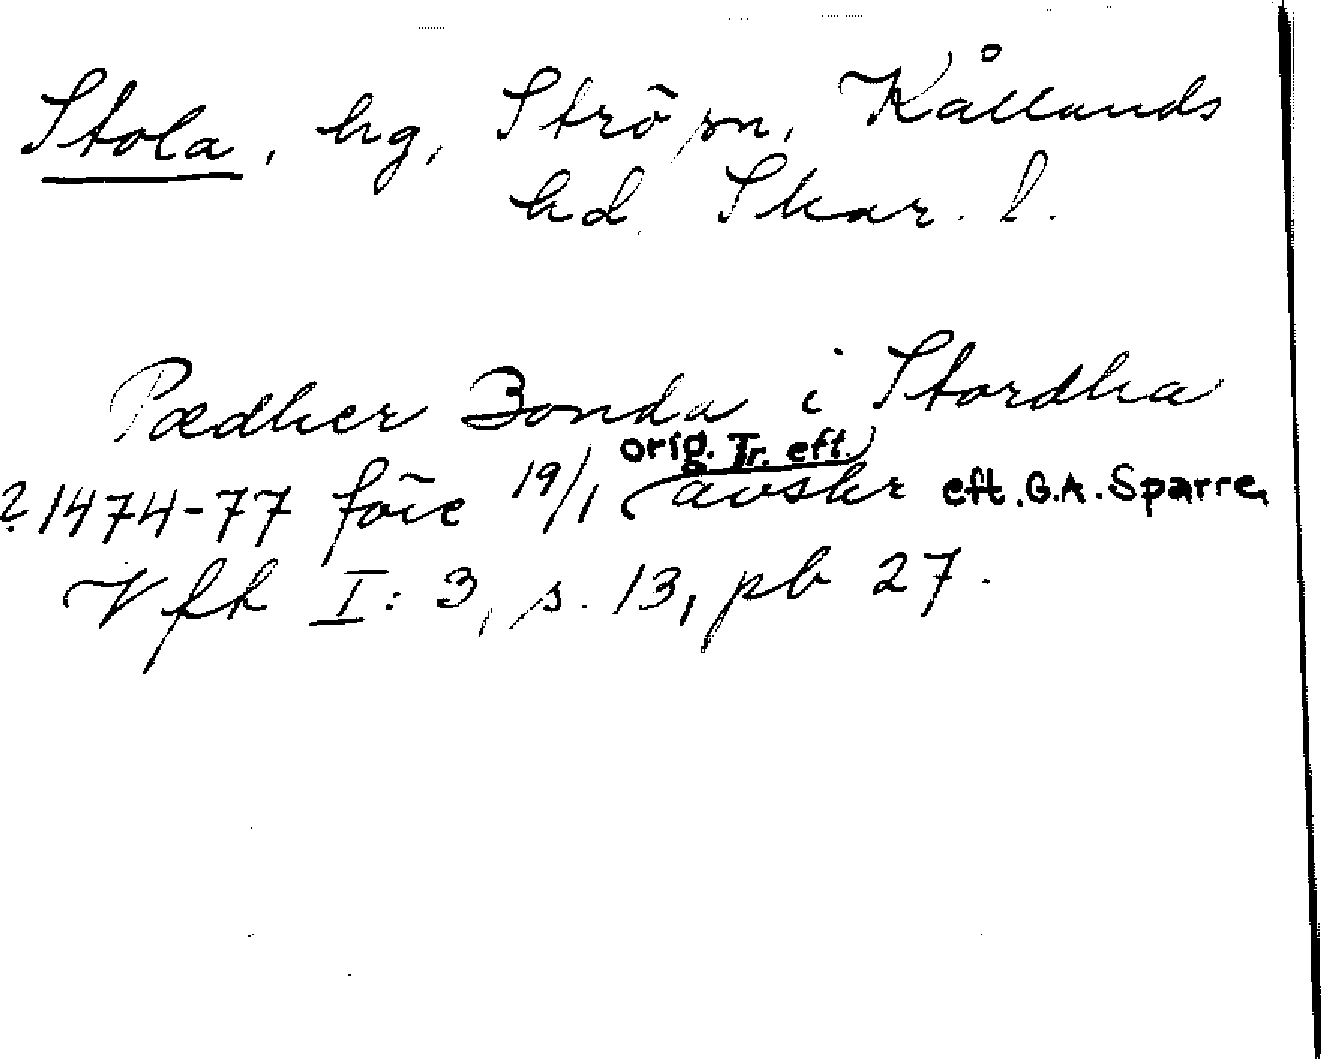 Stola, hg, Strö sn, Kållands
hd. Skar. l.
Pædher Bonda i Stordha
orig. Tr. eft.
? 1474-77 före 19/1 (avskr eft. G.A. Sparre,
Vfh I: 3, s. 13, pb 27.